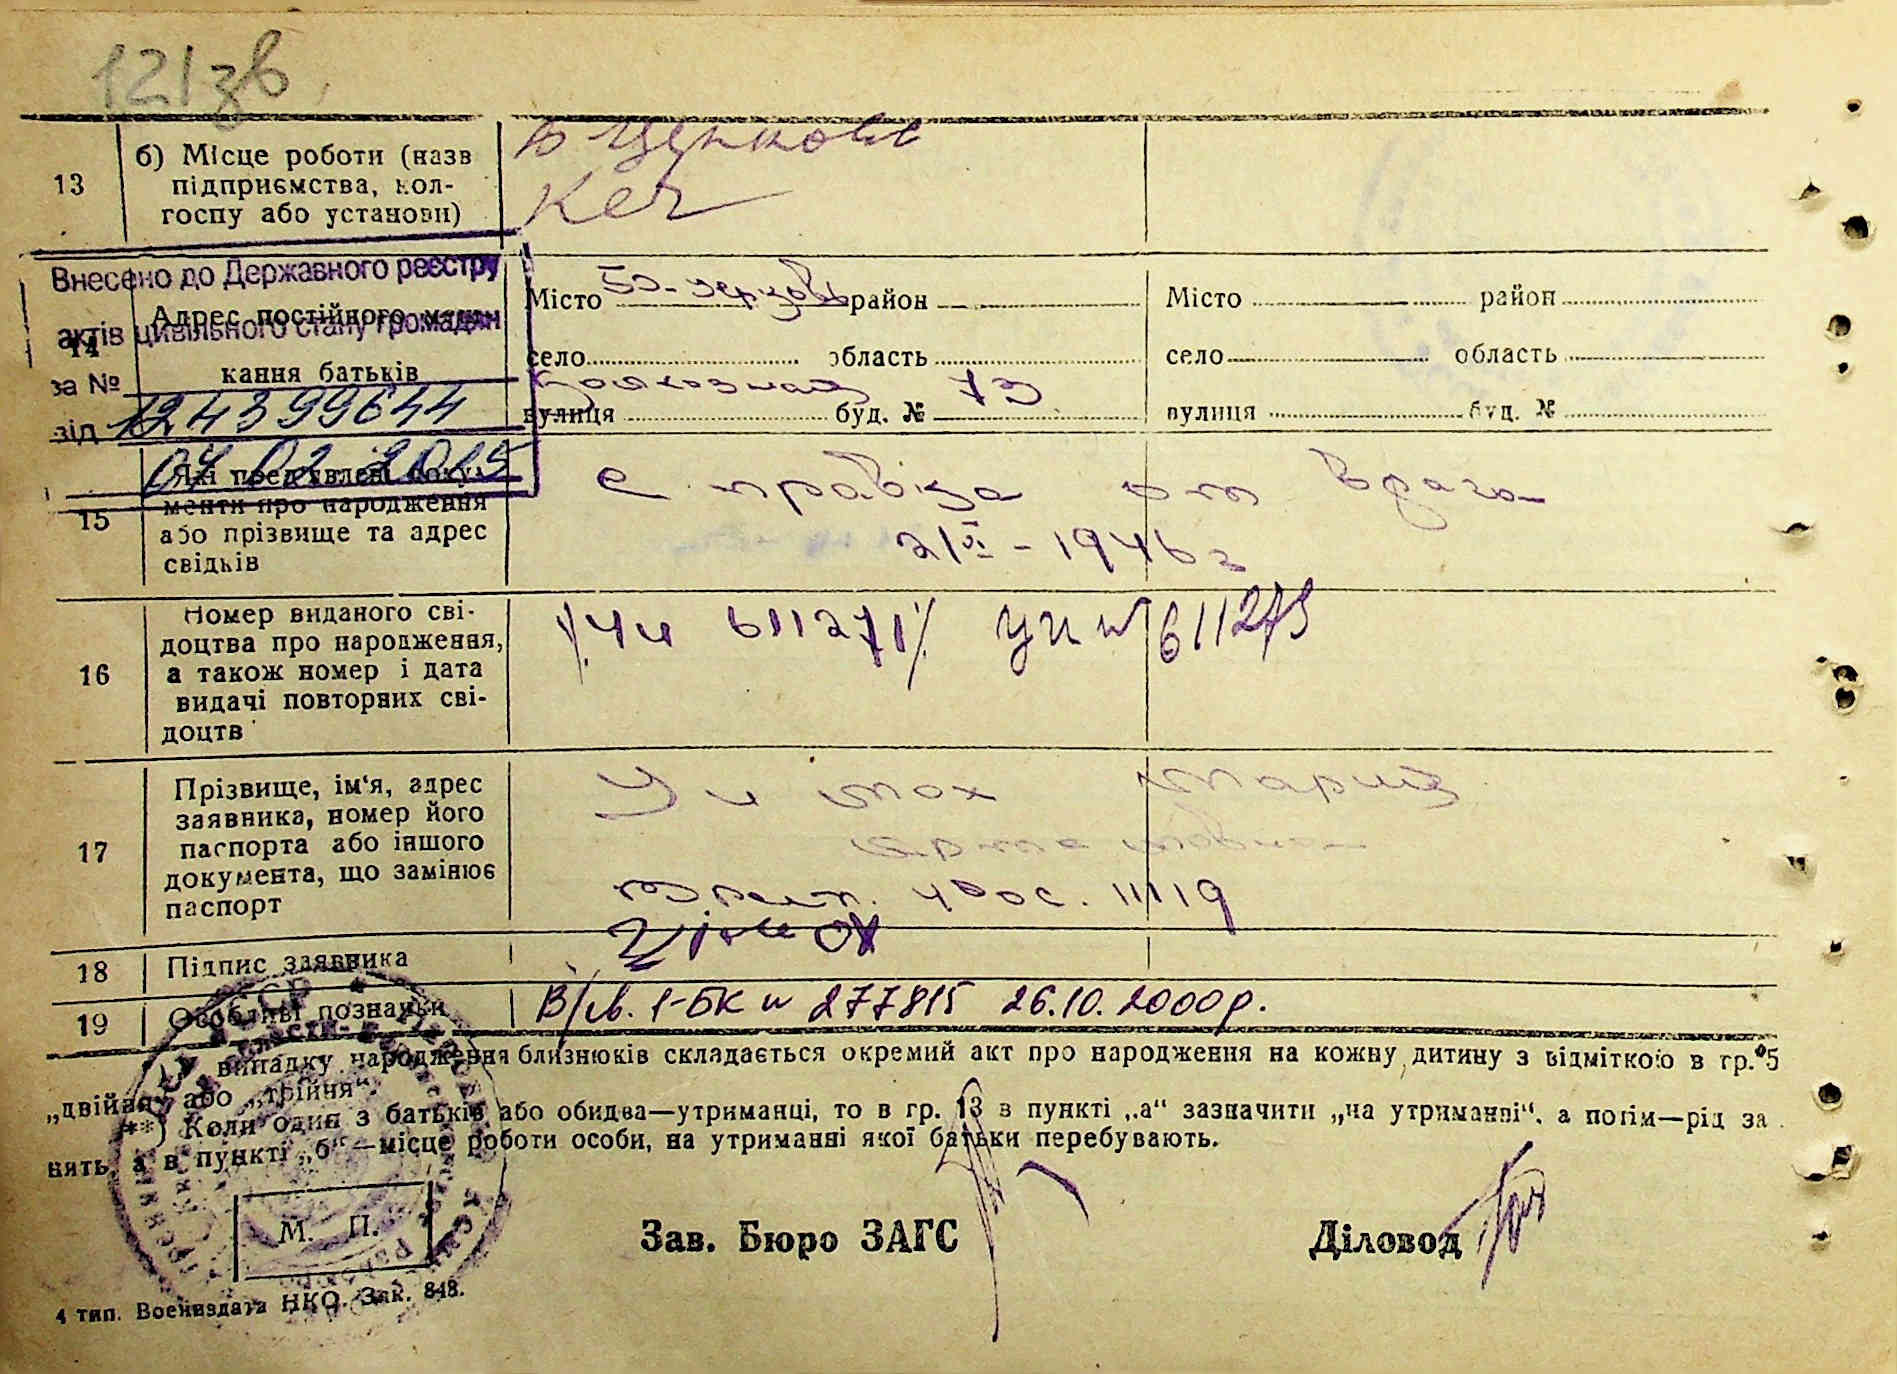 121зв.
13
б) Місце роботи (назв
підприємства, кол-
госпу або установи)
Кеч
Внесено до Державного реєстру
актів цивільного стану громадян
за №
12439964
від
04 02 2015
14
Адрес постійного
кання батьків
Місто район
село область
вулиця буд. № 73
Місто район
село область
вулиця буд. №
15
Які пред'явлені доку-
менти про народження
або прізвище та адрес
свідків
справка от врага
2/VI - 1946 г
16
Номер виданого сві-
доцтва про народження,
а також номер і дата
видачі повторних сві-
доцтв
611271 611273
17
Прізвище, ім'я, адрес
заявника, номер його
паспорта або іншого
документа, що замінює
паспорт
Мария
11119
18
Підпис заявника
19
Особливі позначки
В/св. 1-БК № 277815 26.10.2000р.
випадку народження близнюків складається окремий акт про народження на кожну дитину з відміткою в гр. 5
„двійня“ або „трійня“.
**) Коли один з батьків або обидва—утриманці, то в гр. 13 в пункті „а“ зазначити „на утриманні“, а потім—рід за
нять, а в пункті „б“—місце роботи особи, на утриманні якої батьки перебувають.
М. П.
Зав. Бюро ЗАГС
Діловод
4 тип. Воениздата НКО. Зак. 848.